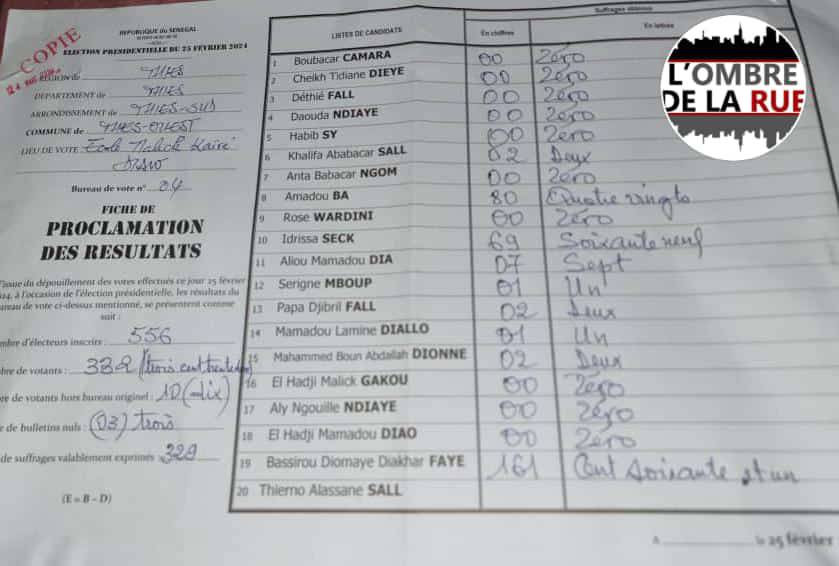 COPIE
REPUBLIQUE DU SENEGAL
ELECTION PRESIDENTIELLE DU 25 FÉVRIER 2024
RÉGION de THIES
DÉPARTEMENT de THIES
ARRONDISSEMENT de THIES-SUD
COMMUNE de THIES-OUEST
LIEU DE VOTE Ecole Malick Kairé
Bureau de vote n° 04
FICHE DE
PROCLAMATION
DES RESULTATS
issue du dépouillement des votes effectués ce jour 25 février
024, à l'occasion de l'élection présidentielle, les résultats du
ureau de vote ci-dessus mentionné, se présentent comme
suit :
mbre d'électeurs inscrits : 556
bre de votants : 332 (trois cent trente deux)
re de votants hors bureau originel : 10 (dix)
e de bulletins nuls : (03) trois
de suffrages valablement exprimés : 329
(E = B – D)
LISTES DE CANDIDATS
Suffrages obtenus
En chiffres
En lettres
1 Boubacar CAMARA 00 Zéro
2 Cheikh Tidiane DIEYE 00 Zéro
3 Déthié FALL 00 Zéro
4 Daouda NDIAYE 00 Zéro
5 Habib SY 00 Zéro
6 Khalifa Ababacar SALL 02 Deux
7 Anta Babacar NGOM 00 Zéro
8 Amadou BA 80 Quatre vingts
9 Rose WARDINI 00 Zéro
10 Idrissa SECK 69 Soixante neuf
11 Aliou Mamadou DIA 07 Sept
12 Serigne MBOUP 01 Un
13 Papa Djibril FALL 02 Deux
14 Mamadou Lamine DIALLO 01 Un
15 Mahammed Boun Abdallah DIONNE 02 Deux
16 El Hadji Malick GAKOU 00 Zéro
17 Aly Ngouille NDIAYE 00 Zéro
18 El Hadji Mamadou DIAO 00 Zéro
19 Bassirou Diomaye Diakhar FAYE 161 Cent soixante et un
20 Thierno Alassane SALL
A le 25 février
L'OMBRE
DE LA RUE